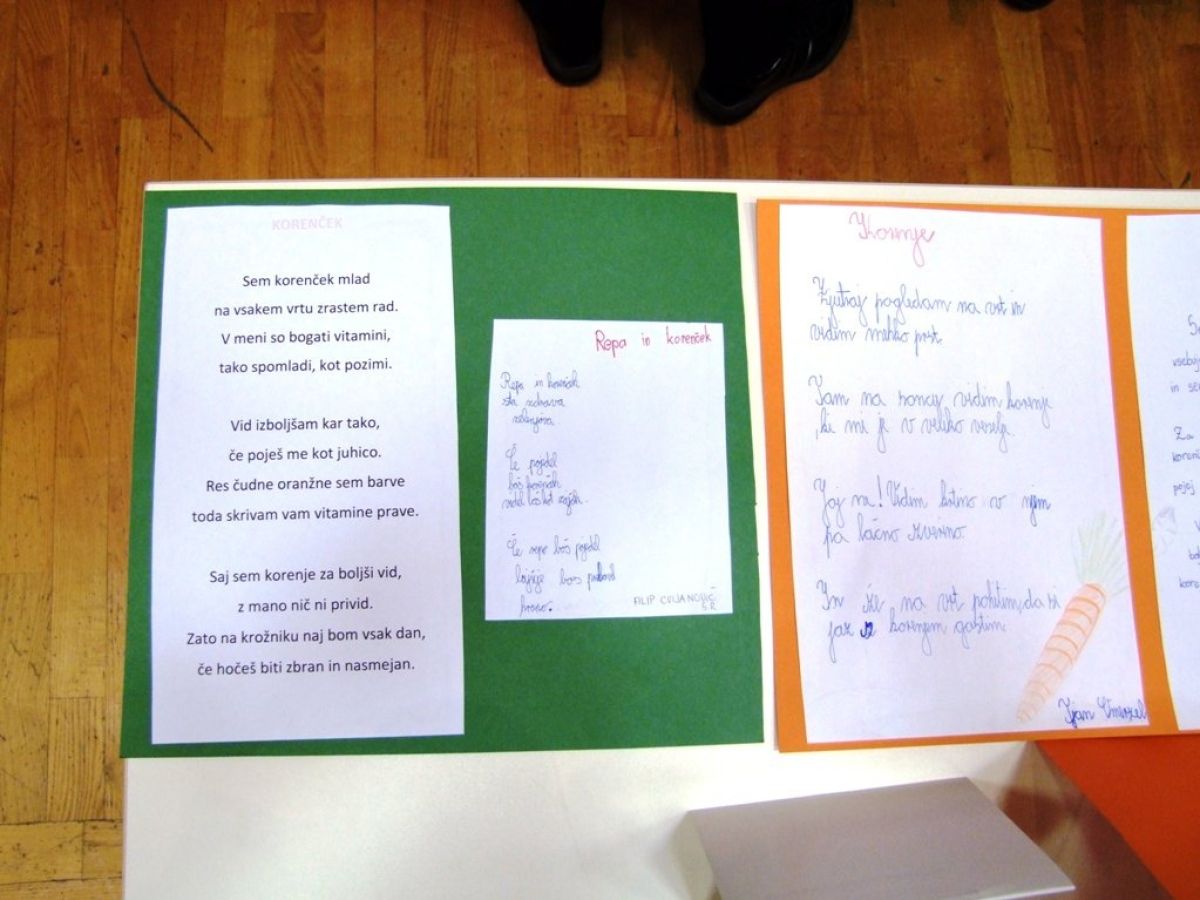 KORENČEK
Sem korenček mlad
na vsakem vrtu zrastem rad.
V meni so bogati vitamini,
tako spomladi, kot pozimi.
Vid izboljšam kar tako,
če poješ me kot juhico.
Res čudne oranžne sem barve
toda skrivam vam vitamine prave.
Saj sem korenje za boljši vid,
z mano nič ni privid.
Zato na krožniku naj bom vsak dan,
če hočeš biti zbran in nasmejan.
Repa in korenček
Repa in korenček
sta zdrava
zelenjava.
Če pojedel
boš korenček
videl boš kot zajček.
Če repo boš pojedel
boš
FILIP CVIJANOVIČ
5.R
Korenje
Zjutraj pogledam na vrt in
vidim mehko prst.
Tam na koncu vidim korenje
ki mi je v veliko veselje.
Joj ne! Vidim luknjo v njem
pa lačno zverino.
In že na vrt pohitim, da se
jaz s korenjem gostim.
Tjan
in se
Za
pejej